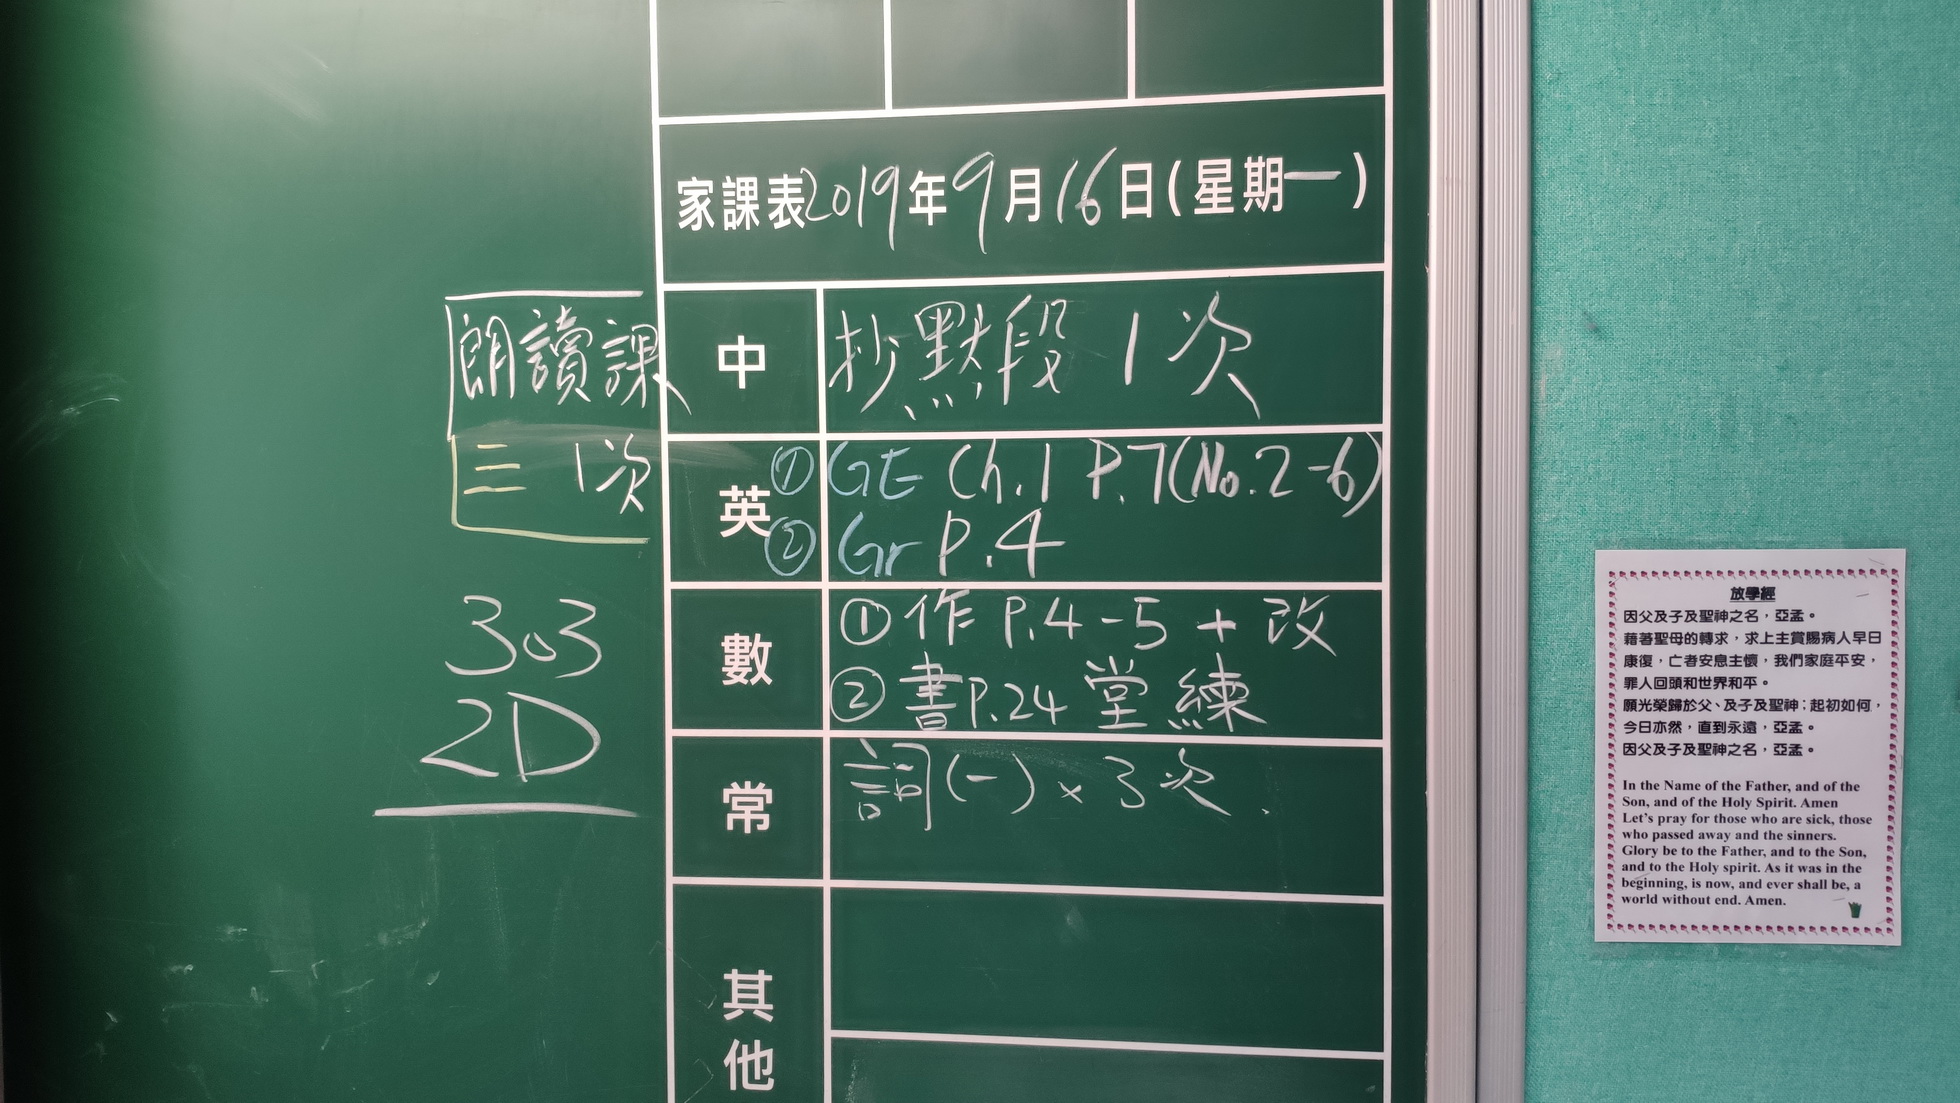 家課表2019年9月16日(星期一)
朗讀課
三 1次
303
2D
中 抄默段 1次
英 ① GE Ch.1 P.7(No.2-6)
② Gr P.4
數 ① 作 P.4-5 + 改
② 書P.24 堂練
常 詞(一) x 3次.
其他
放學經
因父及子及聖神之名，亞孟。
藉著聖母的轉求，求上主賞賜病人早日
康復，亡者安息主懷，我們家庭平安，
罪人回頭和世界和平。
願光榮歸於父、及子及聖神；起初如何，
今日亦然，直到永遠，亞孟。
因父及子及聖神之名，亞孟。
In the Name of the Father, and of the
Son, and of the Holy Spirit. Amen
Let's pray for those who are sick, those
who passed away and the sinners.
Glory be to the Father, and to the Son,
and to the Holy spirit. As it was in the
beginning, is now, and ever shall be, a
world without end. Amen.